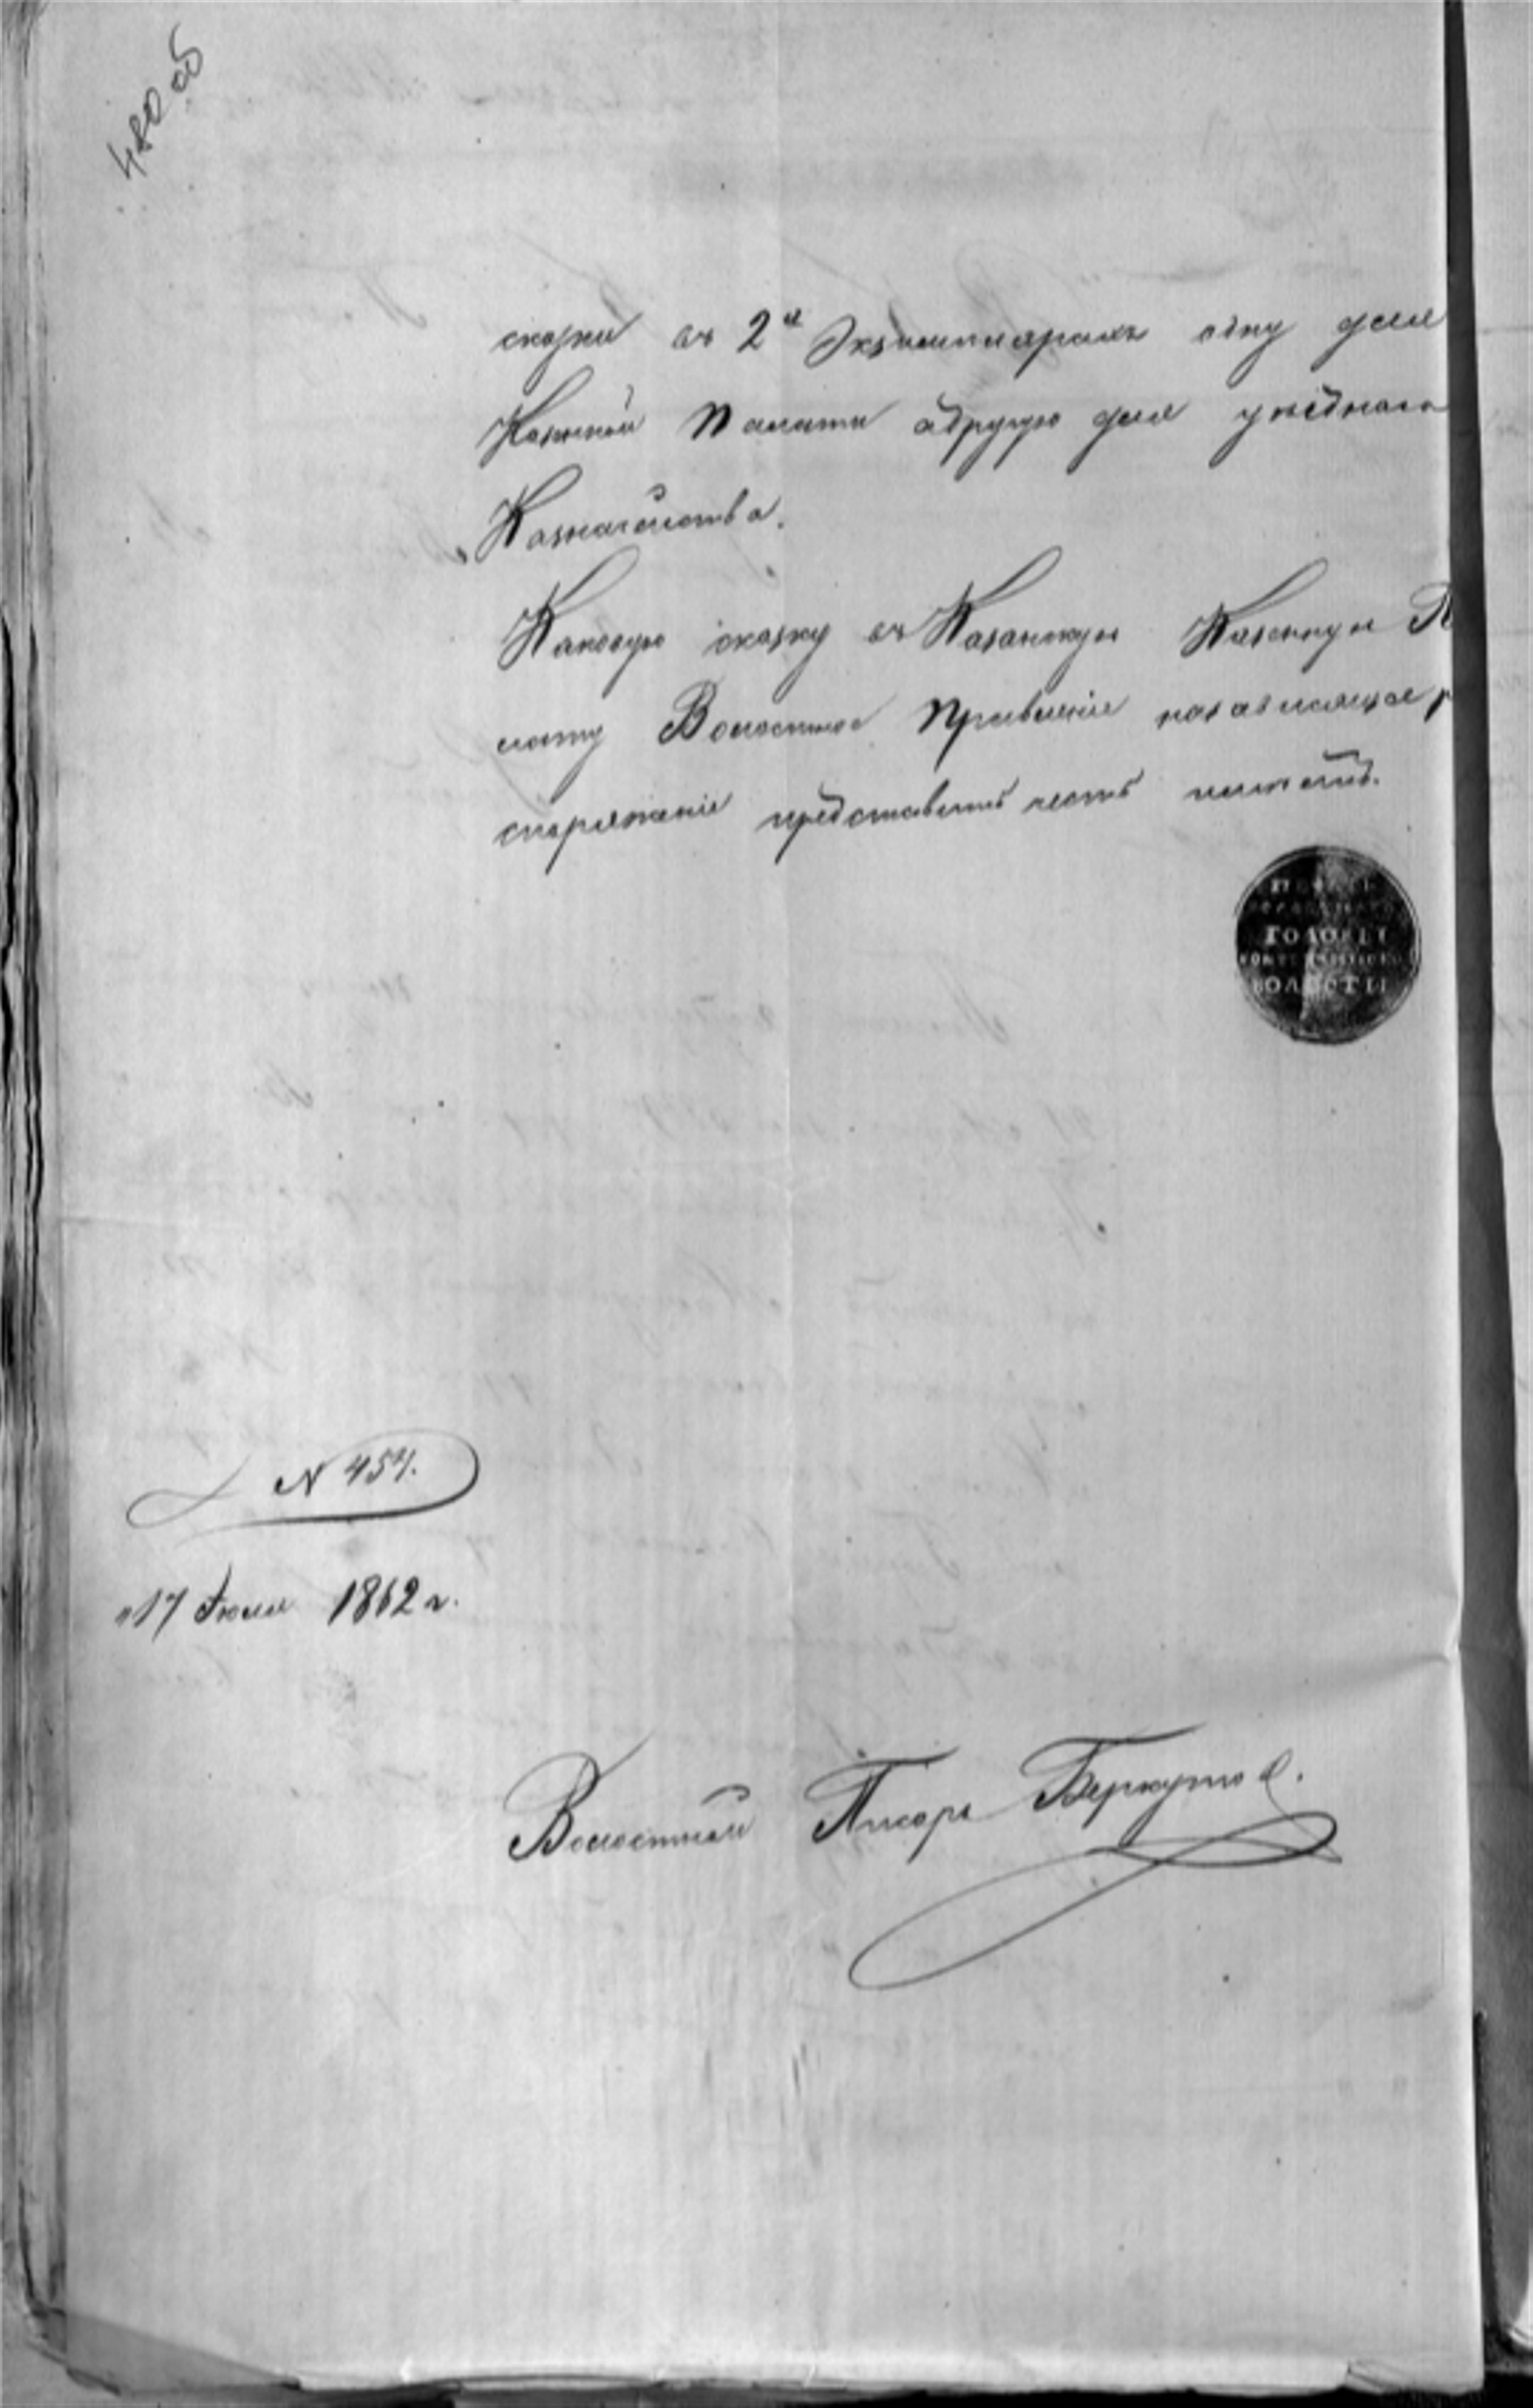 480 об
сказки въ 2х Экземплярахъ одну для
Казенной Палаты адругую для уезднаго
Казначейства.
Каковую сказку въ Казанскую Казенную П
лату Волостное Правленіе назависящее р
споряженіе представить честь имеетъ.
ГОЛОВЫ
ВОЛОСТИ
N 457.
17 Июля 1862 г.
Волостной Писарь Беркутов.